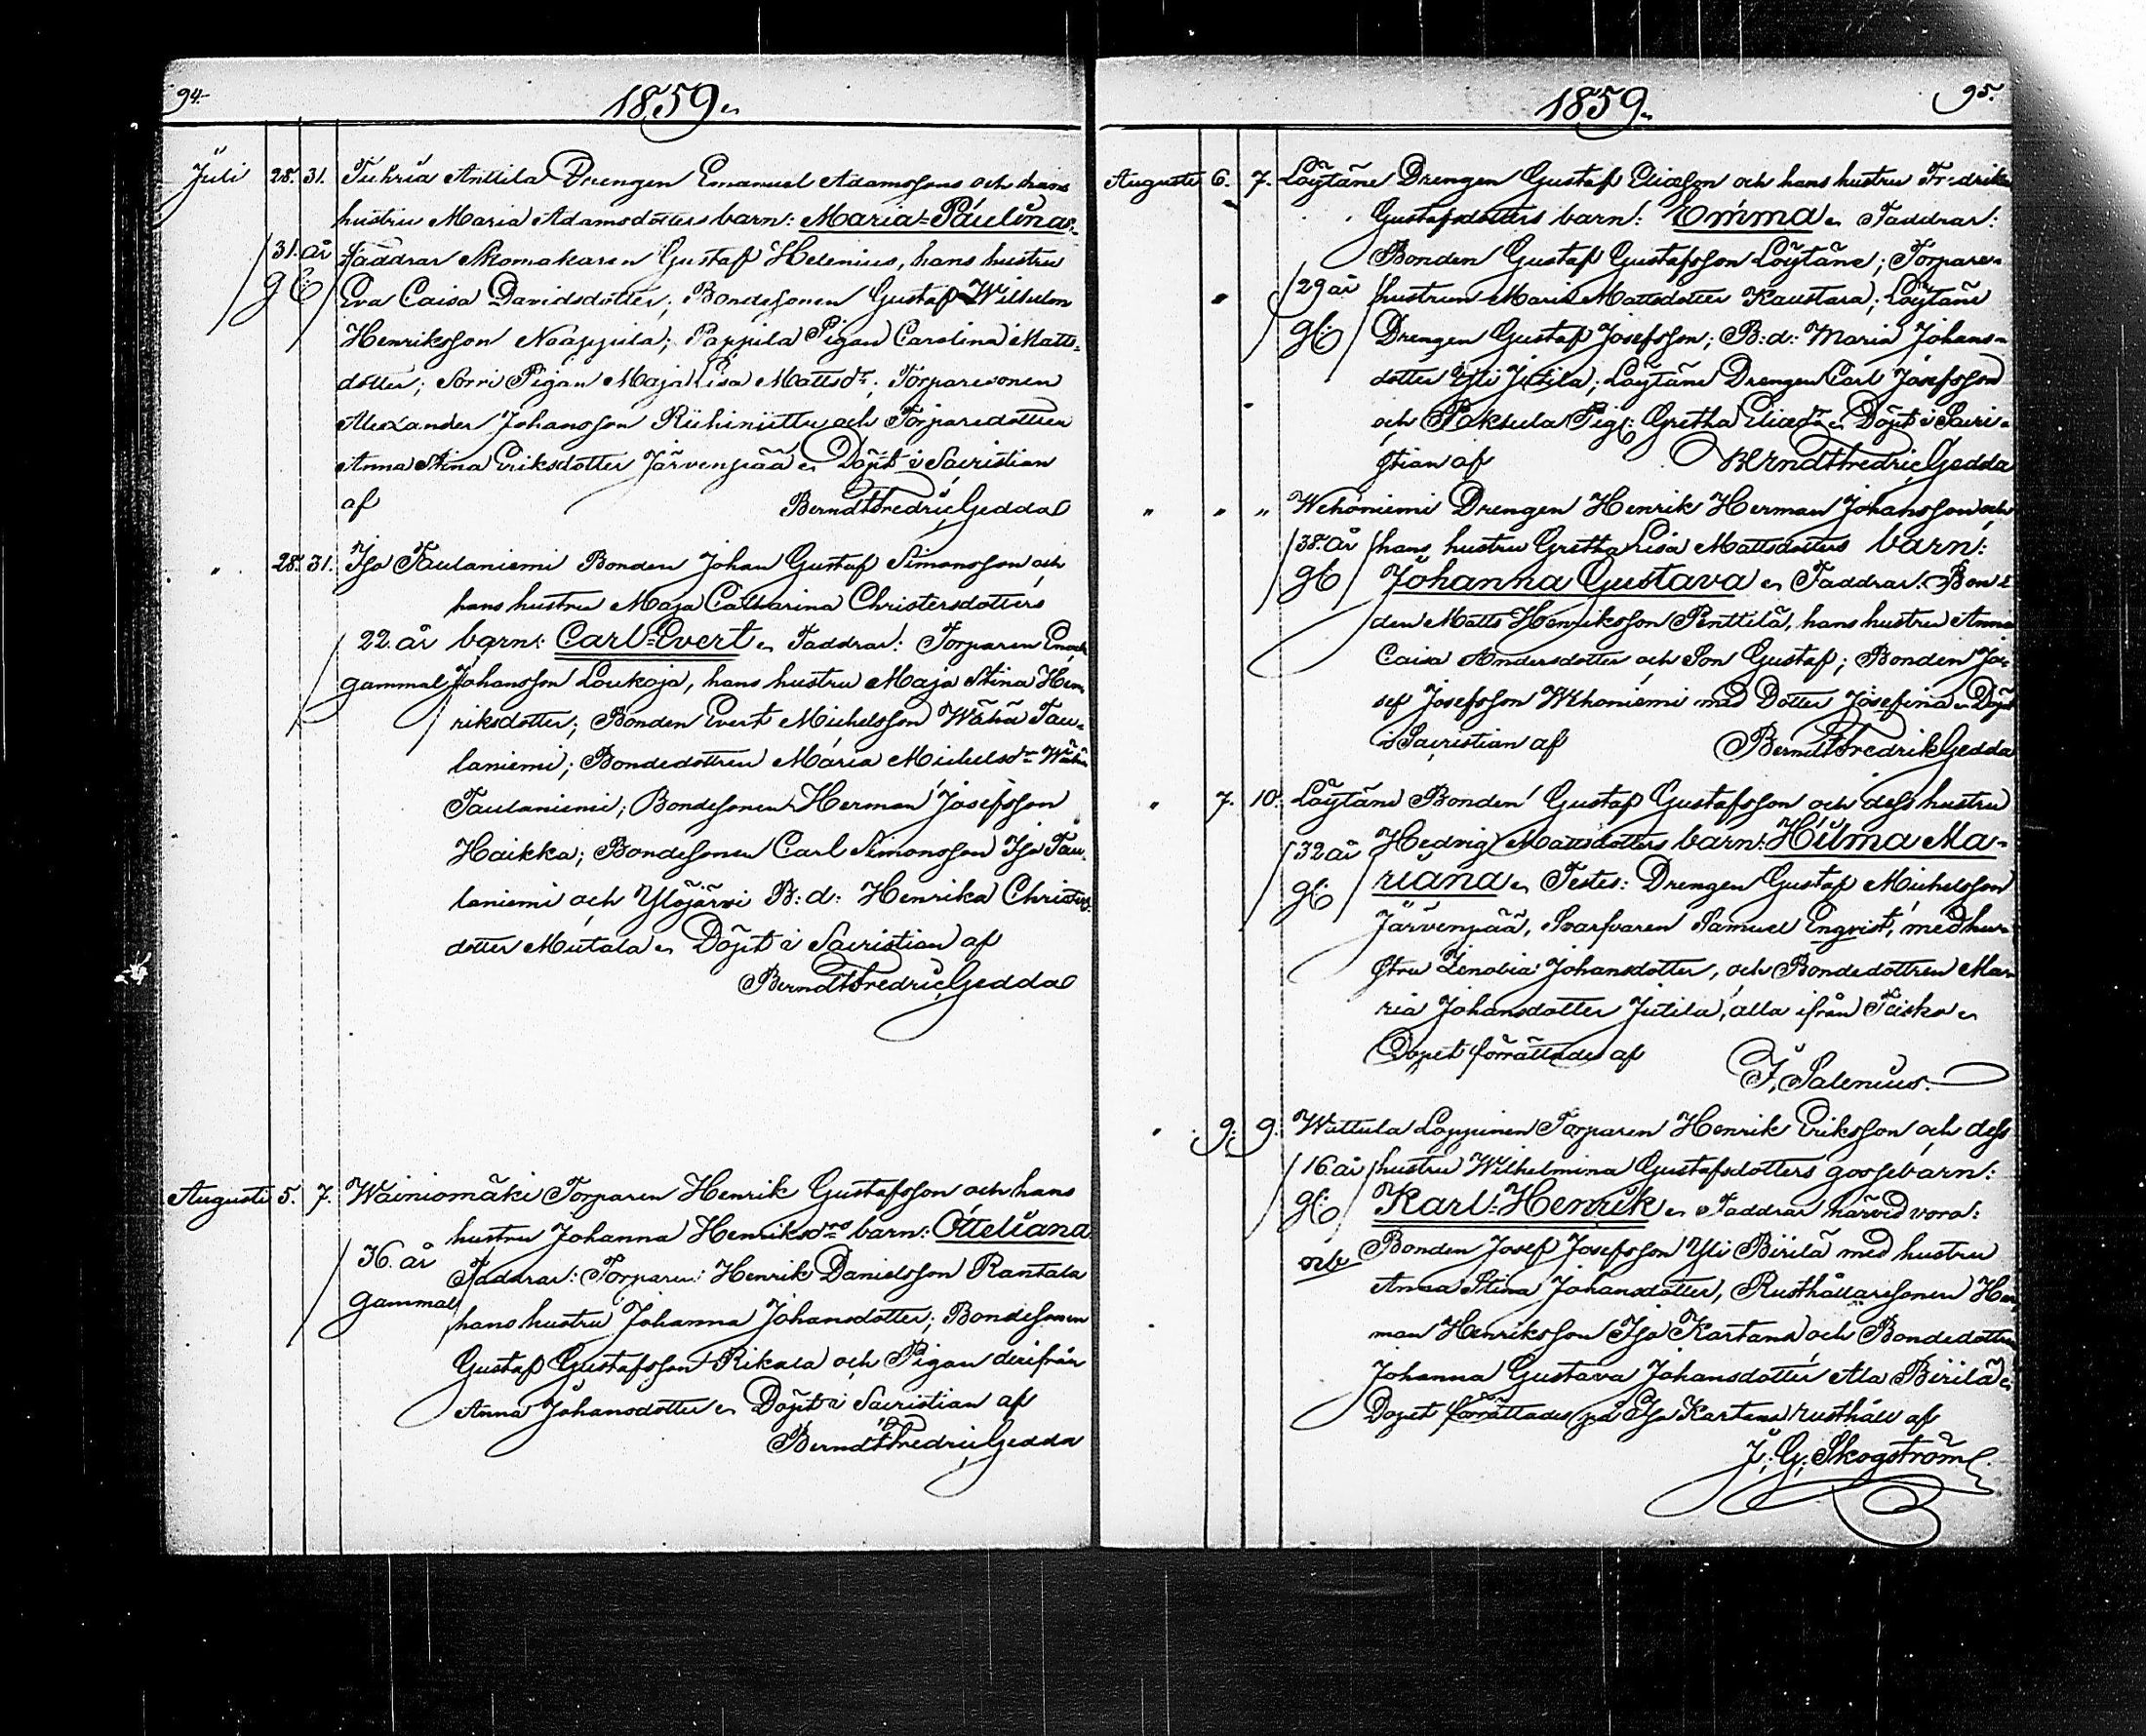 94.
1859.
Juli 28. 31. Tuhria Anttila Drengen Emanuel Adamssons och hans
hustru Maria Adamsdotters barn: Maria=Paulina.
31. år Faddrar Skomakaren Gustaf Helenius, hans hustru
gl: Eva Caisa Davidsdotter; Bondesonen Gustaf Wilhelm
Henriksson Noappila; Pappila Pigan Carolina Matts-
dotter; Sorri Pigan Maja Lisa Mattsdr; Torparesonen
Alexander Johansson Riihiniittu och Torparedottren
Anna Stina Eriksdotter Järvenpää. Döpt i Sacristian
af Berndt Fredric Gedda
" 28. 31. Iso Taulaniemi Bonden Johan Gustaf Simonsson och
hans hustru Maja Catharina Christersdotters
22. år barn: Carl=Evert. Faddrar: Torparen Enock
gammal Johansson Loukoja, hans hustru Maja Stina Hen-
riksdotter; Bonden Evert Michelsson Wähä Tau-
laniemi; Bondedottren Maria Michelsdr Wähä
Taulaniemi; Bondesonen Herman Josefsson
Haikka; Bondesonen Carl Simonsson Iso Tau-
laniemi och Ylöjärvi B:d: Henrika Christers-
dotter Mutala. Döpt i Sacristian af
Berndt Fredric Gedda
Augusti 5. 7. Wäiniomäki Torparen Henrik Gustafsson och hans
hustru Johanna Henriksdrs barn: Otteliana
36. år Faddrar: Torparen: Henrik Danielsson Rantala
gammal hans hustru Johanna Johansdotter; Bondesonen
Gustaf Gustafsson Rikala och Pigan derifrån
Anna Johansdotter. Döpt i Sacristian af
Berndt Fredric Gedda
95.
1859.
Augusti 6. 7. Löytäne Drengen Gustaf Eliasson och hans hustru Fredrika
Gustafsdotters barn: Emma. Faddrar:
Bonden Gustaf Gustafsson Löytäne; Torpare-
29 år hustrun Maria Mattsdotter Kaustara; Löytäne
gl: Drengen Gustaf Josefsson; B:d: Maria Johans-
dotter Yli Jutila; Löytäne Drengen Carl Josefsson
och Paksula Pig: Gretha Eliædr. Döpt i Sacri-
stian af Berndt Fredric Gedda
" " " Wehoniemi Drengen Henrik Herman Johansson och
38. år hans hustru Gretha Lisa Mattsdotters barn:
gl: Johanna Gustava. Faddrar: Bon-
den Matts Henriksson Penttilä, hans hustru Anna
Caisa Andersdotter och Son Gustaf; Bonden Jo-
sef Josefsson Wehoniemi med Dotter Josefina. Döpt
i Sacristian af Berndt Fredrik Gedda
" 7. 10. Löytäne Bonden Gustaf Gustafsson och dess hustru
32 år Hedvig Mattsdotters barn: Hilma Ma-
gl: riana. Testes: Drengen Gustaf Michelsson
Järvenpää, Svarfvaren Samuel Engvist, med hu-
stru Zenobia Johansdotter, och Bondedottren Ma-
ria Johansdotter Jutila, alla ifrån Teisko.
Dopet förrättades af
F. Salenius.
" 9. 9. Wattula Loppinen Torparen Henrik Eriksson och dess
16. år hustru Wilhelmina Gustafsdotters gossebarn:
gl: Karl=Henrik. Faddrar härvid voro:
Bonden Josef Josefsson Yli Birilä med hustru
Anna Stina Johansdotter, Rusthållaresonen Her-
man Henriksson Iso Kartano och Bondedottren
Johanna Gustava Johansdotter Ala Birilä.
Dopet förrättades på Iso Kartano rusthåll af
J. G. Skogström